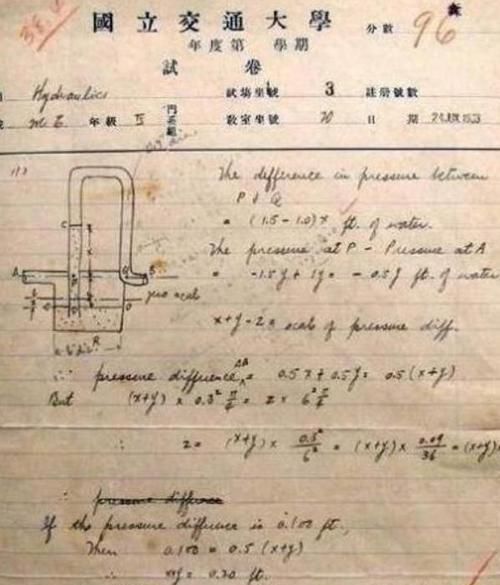 國立交通大學
年度第 學期
試卷
分數 96
Hydraulics 試場坐號 3 註冊號數
M E 年級 IV 門系組 教室坐號 20 日期 24 JUN 1933
The difference in pressure between
P & Q
= (1.5 - 1.0)x ft. of water.
The pressure at P - Pressure at A
= -1.5y + 1y = -0.5y ft. of water
C
A
B
zero scale
R
x+y-z = scale of pressure diff.
∴ pressure difference = 0.5x + 0.5y = 0.5(x+y)
But (x+y) x 0.3² π/4 = z x 6² π/4
∴ z = (x+y) x 0.3²/6² = (x+y) x 0.09/36 = (x+y)
∴ pressure difference
If the pressure difference is 0.100 ft.,
Then 0.100 = 0.5 (x+y)
∴ x+y = 0.20 ft.